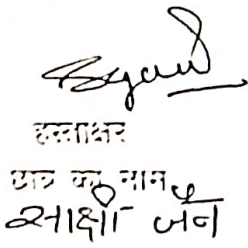 हस्ताक्षर
छात्र का नाम
साक्षी जैन